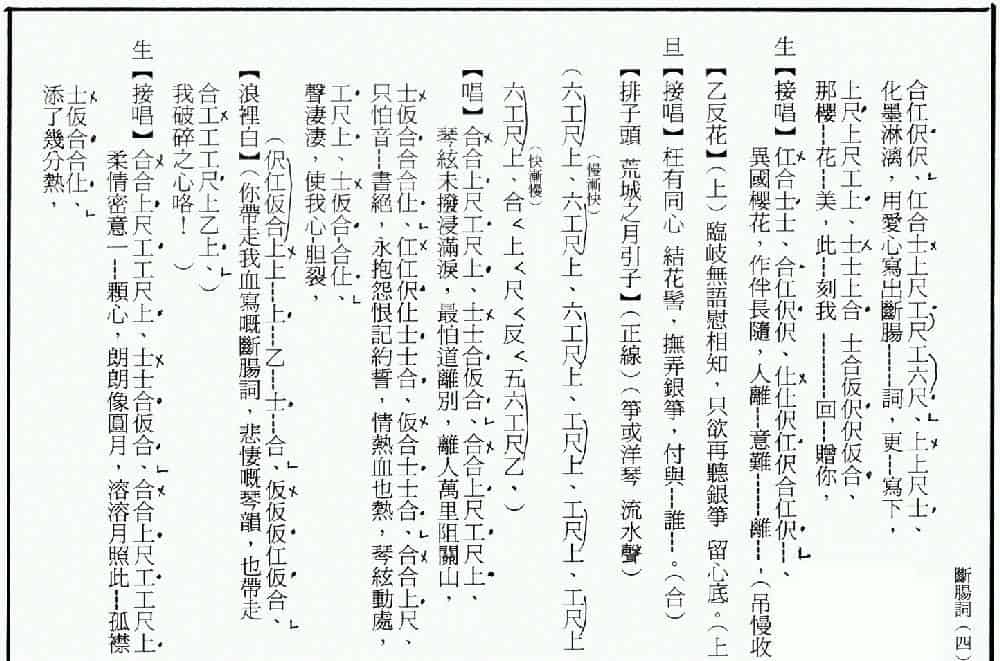 斷腸詞（四）
合仜伬伬、仜合士上尺工尺工六尺、上上尺士、
化墨淋漓，用愛心寫出斷腸┅┅詞，更┅寫下，
上尺上尺工上、士士上合　士合仮伬伬仮合、
那櫻┅花┅美　此┅刻我┅┅┅回┅贈你，
生【接唱】仜合士士、合仜伬伬、仩仩伬仜伬合仜伬┅、
異國櫻花，作伴長隨，人離┅意難┅┅┅離┅，（吊慢收
【乙反花】（上）臨岐無語慰相知，只欲再聽銀箏　留心底。（上
旦【接唱】枉有同心　結花髻，撫弄銀箏，付與┅誰┅。（合）
【排子頭　荒城之月引子】（正線）（箏或洋琴　流水聲）
（慢漸快）
（六工尺上、六工尺上、六工尺上、工尺上、工尺上、工尺上
（快漸慢）
六工尺上、合く上く尺く反く五六工尺乙、）
【唱】合合上尺工尺上、士士合仮合、合合上尺工尺上、
琴絃未撥浸滿淚，最怕道離別，離人萬里阻關山，
士仮合合合仩、仜仜伬仩士士合、仮合士士合、合合上尺、
只怕音┅書絕，永抱怨恨記約誓，情熱血也熱，琴絃動處，
工尺上、士仮合合仩、
聲淒淒，使我心┅胆裂，
（伬仜仮合上上┅┅上┅┅乙┅┅士┅┅合、仮仮仮仜仮合、
【浪裡白】（你帶走我血寫嘅斷腸詞，悲悽嘅琴韻，也帶走
合工工工尺上乙上、）
我破碎之心咯！
生【接唱】合合上尺工工工尺上、士士合仮合、合合上尺工工尺上
柔情密意一┅┅顆心，朗朗像圓月，溶溶月照此┅┅孤襟
士仮合合仩、
添了幾分熱，